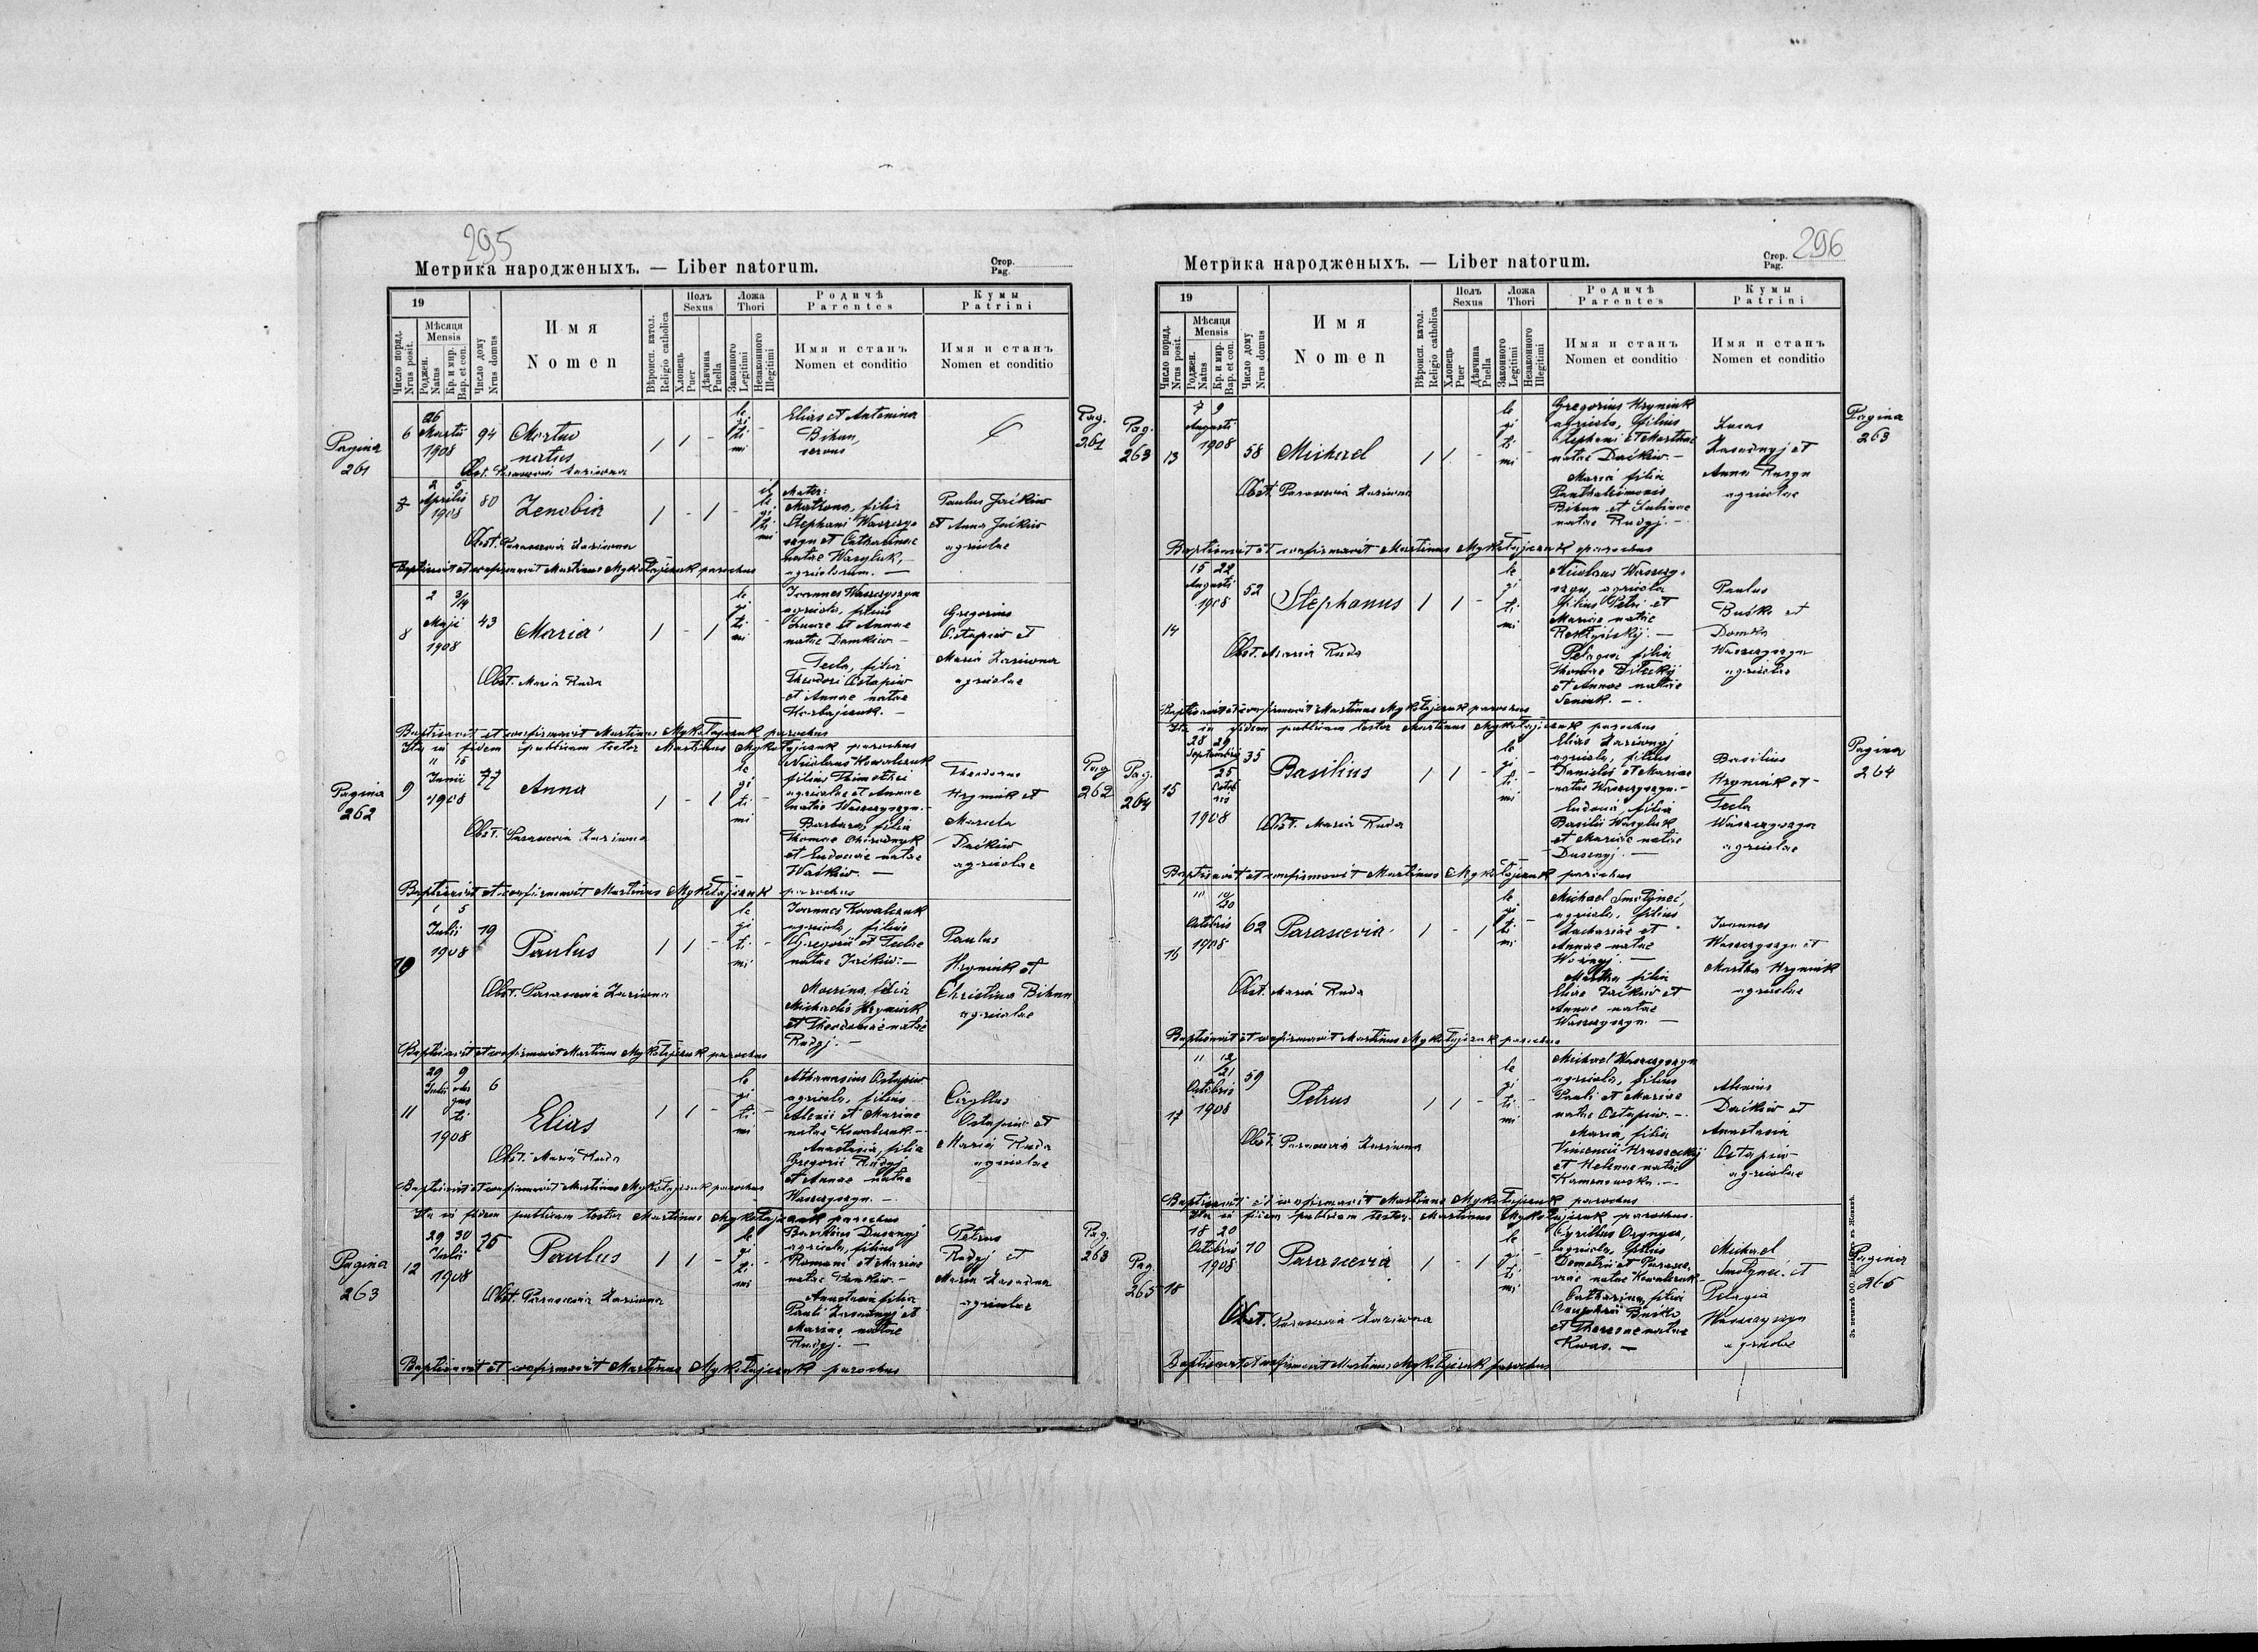 295
Метрика народженыхъ. — Liber natorum.
Стор.
Pag.
19
Число поряд.
Nrus posit.
Мѣсяця
Mensis
Роджен.
Natus
Кр. и мир.
Bap. et con.
Число дому
Nrus domus
Имя
Nomen
Вѣроисп. катол.
Religio catholica
Полъ
Sexus
Хлопець
Puer
Дѣвчина
Puella
Ложа
Thori
Законного
Legitimi
Незаконного
Illegitimi
Родичѣ
Parentes
Имя и станъ
Nomen et conditio
Кумы
Patrini
Имя и станъ
Nomen et conditio
Pagina
261
6
26
Martii
1908
94
Mortuo
natus
Obst. Parascevia Zariwna
legitimi
Elias et Antonina
Bihun
Pag.
261
7
2 5
Aprilis
1908
80
Zenobia
Obst. Parascevia Zariwna
illegitimi
Mater:
Matrona, filia
Stephani Waszczy-
szyn et Catharinae
natae Wasyluk,
agricolarum. —
Paulus Jaćkiw
et Anna Jaćkiw
agricolae
Baptisavit et confirmavit Martinus Mykołajczuk parochus
8
2 3/14
Maji
1908
43
Maria
Obst. Maria Ruda
legitimi
Ioannes Waszczyszyn
agricola, filius
Lucae et Annae
natae Damkiw —
Tecla, filia
Theodori Ostapiw
et Annae natae
Gregorius
Ostapiw et
Maria Zariwna
agricolae
Baptisavit et confirmavit Martinus Mykołajczuk parochus
Ita in fidem publicam testor Martinus Mykołajczuk parochus
Pagina
262
9
11 15
Junii
1908
77
Anna
Obst. Parascevia Zariwna
legitimi
Nicolaus Kowalczuk
filius Thimothei
agricolae et Annae
natae Waszczyszyn. —
Barbara, filia
Thomae
et Eudociae natae
Waśkiw. —
Theodorus
Hryniuk et
Marcela
Daćkiw
agricolae
Pag
262
Baptisavit et confirmavit Martinus Mykołajczuk parochus
10
1 5
Julii
1908
19
Paulus
Obst. Parascevia Zariwna
legitimi
Ioannes Kowalczuk
agricola, filius
Gregorii et Teclae
natae Jaćkiw. —
Macrina, filia
Michaelis Hryniuk
et Theodosiae natae
Rudyj. —
Paulus
Hryniuk et
Christina Bihun
agricolae
Baptisavit et confirmavit Martinus Mykołajczuk parochus
11
29 9
Julii Augusti
1908
6
Elias
Obst. Maria Ruda
legitimi
Athanasius Ostapiw
agricola, filius
Alexii et Mariae
natae Kowalczuk. —
Anastasia, filia
Gregorii Rudyj
et Annae natae
Waszczyszyn. —
Ciryllus
Ostapiw et
Maria Ruda
agricolae
Baptisavit et confirmavit Martinus Mykołajczuk parochus
Ita in fidem publicam testor Martinus Mykołajczuk parochus
Pagina
263
12
29 30
Julii
1908
75
Paulus
Obst. Parascevia Zariwna
legitimi
Basilius Dusanyj
agricola, filius
Romani et Mariae
Anastasia filia
Pauli et
Mariae natae
Rudyj. —
Petrus
Rudyj et
Maria
agricolae
Pag.
263
Baptisavit et confirmavit Martinus Mykołajczuk parochus
296
Метрика народженыхъ. — Liber natorum.
Стор.
Pag.
19
Число поряд.
Nrus posit.
Мѣсяця
Mensis
Роджен.
Natus
Кр. и мир.
Bap. et con.
Число дому
Nrus domus
Имя
Nomen
Вѣроисп. катол.
Religio catholica
Полъ
Sexus
Хлопець
Puer
Дѣвчина
Puella
Ложа
Thori
Законного
Legitimi
Незаконного
Illegitimi
Родичѣ
Parentes
Имя и станъ
Nomen et conditio
Кумы
Patrini
Имя и станъ
Nomen et conditio
Pag.
263
13
7 9
Augusti
1908
58
Michael
Obst. Parascevia Zariwna
legitimi
Gregorius Hryniuk
agricola, filius
Stephani et Marthae
natae Daćkiw. —
Maria filia
Panthaleimonis
Bihun et Julianae
natae Rudyj. —
Lucas
et
Anna
agricolae
Pagina
263
Baptisavit et confirmavit Martinus Mykołajczuk parochus
14
15 22
Augusti
1908
52
Stephanus
Obst. Maria Ruda
legitimi
Nicolaus Waszczy-
szyn, agricola
filius Petri et
Mariae natae
Pelagia filia
Thomae
et Annae natae
Paulus
Buśko et
Domka
Waszczyszyn
agricolae
Baptisavit et confirmavit Martinus Mykołajczuk parochus
Ita in fidem publicam testor Martinus Mykołajczuk parochus
Pag.
264
15
28 29
Septembris
25
Octobris
1908
35
Basilius
Obst. Maria Ruda
legitimi
Elias Zariwnyj
agricola, filius
Danielis et Mariae
natae Waszczyszyn. —
Eudocia, filia
Basilii Wasyluk
et Mariae natae
Dusanyj. —
Basilius
Hryniuk et
Tecla
Waszczyszyn
agricolae
Pagina
264
Baptisavit et confirmavit Martinus Mykołajczuk parochus
16
11
Octobris
1908
62
Parascevia
Obst. Maria Ruda
legitimi
Michael Smołyneć,
agricola, filius
Zachariae et
Annae natae
Martha, filia
Eliae Jaćkiw et
Annae natae
Waszczyszyn. —
Ioannes
Waszczyszyn et
Martha Hryniuk
agricolae
Baptisavit et confirmavit Martinus Mykołajczuk parochus
17
11
Octobris
1908
59
Petrus
Obst. Parascevia Zariwna
legitimi
Michael Waszczyszyn
agricola, filius
Pauli et Mariae
natae Ostapiw. —
Maria, filia
Vincencii
et Helenae natae
Alexius
Daćkiw et
Anastasia
Ostapiw
agricolae
Baptisavit et confirmavit Martinus Mykołajczuk parochus
Ita in fidem publicam testor Martinus Mykołajczuk parochus.
Pag.
265
18
18 20
Octobris
1908
10
Parascevia
Obst. Parascevia Zariwna
legitimi
Cyrillus
agricola, filius
Demetrii et Parasce-
viae natae Kowalczuk —
Catharina, filia
Buśko
et Theresae natae
Kwas. —
Michael
Smołyneć et
Pelagia
Waszczyszyn
agricolae
Pagina
265
Baptisavit et confirmavit Martinus Mykołajczuk parochus